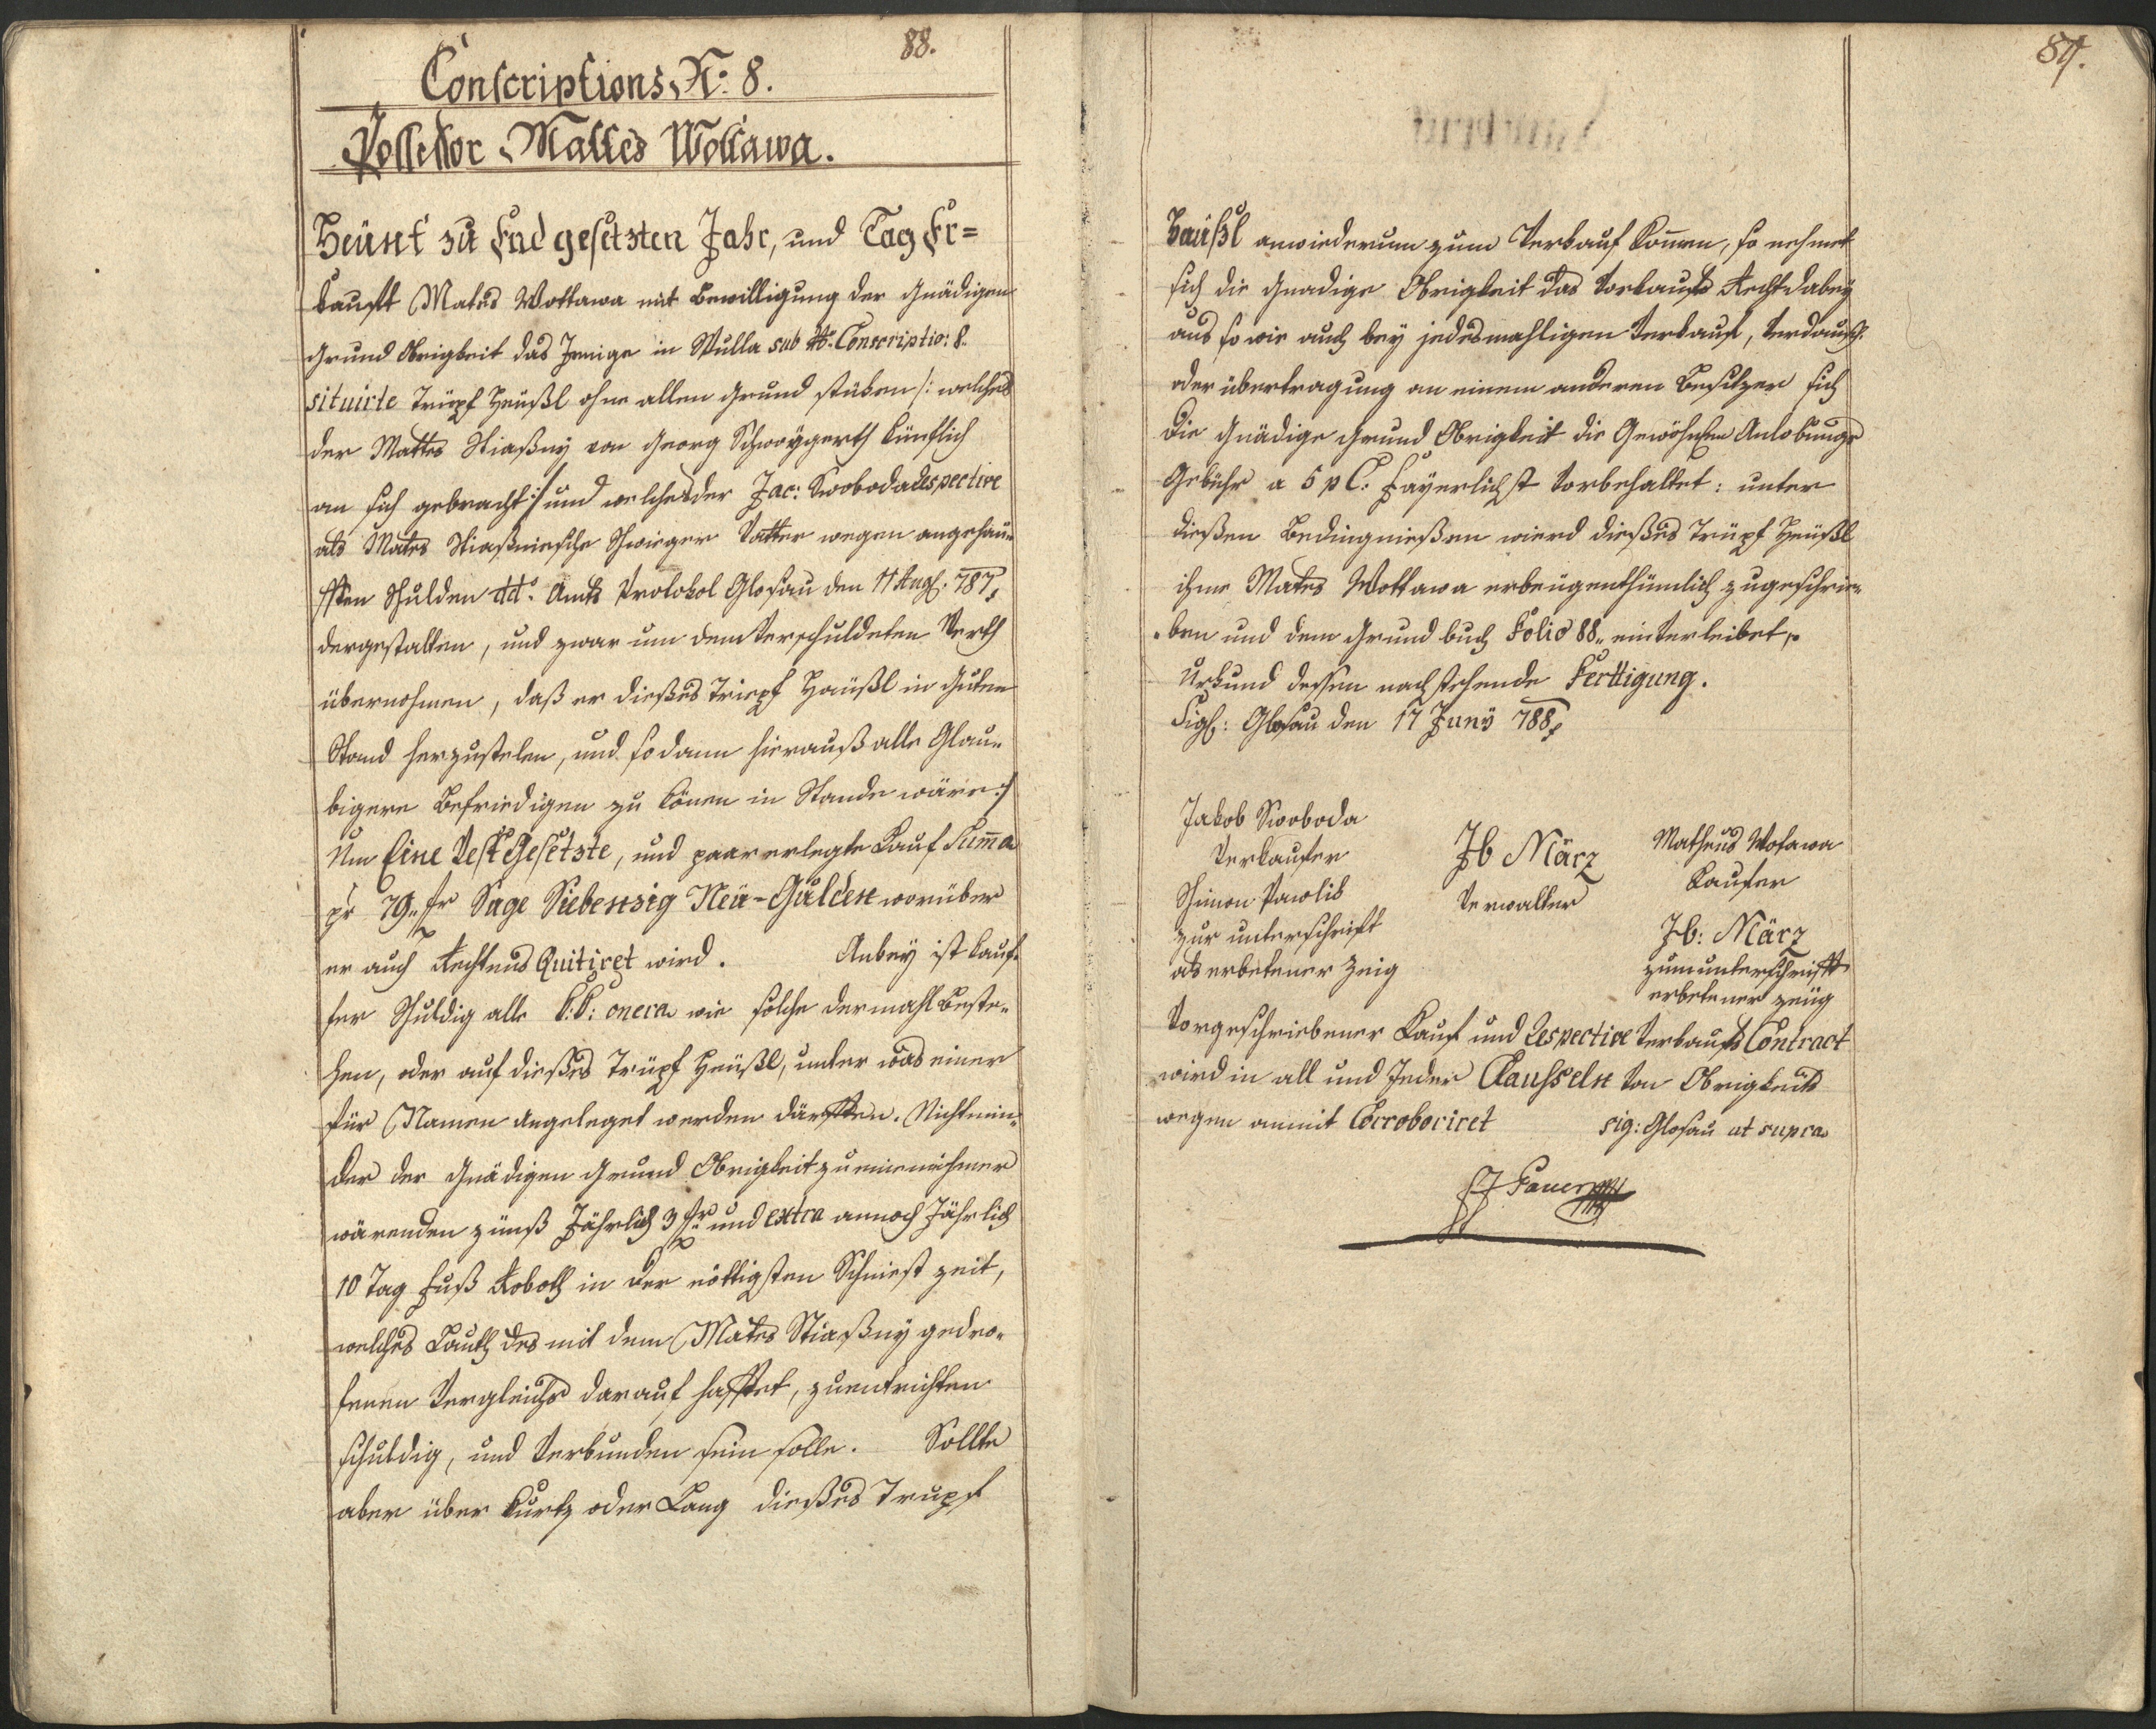 88.
Conscriptions N: 8.
Possessor Mattes Wottawa.
Heünt zu End gesetzten Jahr, und Tag Er=
kauft Mates Wottawa mit Bewilligung der Gnädigen
Grund Obrigkeit das Jenige in Mulla sub No. Conscriptio: 8.
situirte Trüpf Heußl ohne allen Grund stüken /: welches
der Mattes Stiaßny von Georg Schweÿgerth künftlich
an sich gebracht :/ und welches der Jac: Swoboda respective
als Mates Stiaßnische Schwieger Vatter wegen angehäu-
ften Schulden dd. Amts Protokol Glosau den 11 Aug. 787,
dergestalten, und zwar um dem Verschuldeten Werth
übernohmen, daß er dießes Triepf Häußl in Guten
Stand herzustelen, und sodann hierauß alle Glau-
bigere Befriedigen zu könen in Stande wäre :/
Um Eine Vest Gesetzte, und paar erlegte Kauf Suma
pr 79 fr Sage Siebenzig Neü-Gulden worüber
er auch Rechtens Quitiret wird. Anbey ist Kauf-
fer Schuldig alle k.k: onera wie solche dermahl Beste-
hen, oder auf dießes Trüpf Heußl, unter was einer
für Namen angeleget werden därften. Nichtmin-
der der Gnädigen Grund Obrigkeit zu immer
wärenden zünß Jährlich 3 fr und extra annoch Jährlich
10 Tag Fuß Roboth in der nöttigsten Schniet zeit,
welches Lauth des mit dem Mates Stiaßny gedro-
fenen Vergleichs darauf haftet, zu entrichten
schuldig, und Verbunden sein solle. Sollte
aber über Kurtz oder Lang dießes Trupf
89.
Haüßl anwiederum zum Verkauf komen, so nehmet
sich die Gnadige Obrigkeit das Vorkaufs Recht dabey
aus so wie auch bey jedesmahligen Verkauf, Verdausch
oder übertragung an einem anderen Besitzer sich
Die Gnädige Grund Obrigkeit die Gewöhnlichen Anlobungs
Gebühr a 5 p C. Fayerlichst Vorbehaltet: unter
dießen Bedingnießen wierd dießes Trüpf Heußl
ihme Mates Wottawa erbeügenthümlich zugeschrie-
ben und dem Grund buch Folio 88 einverleibet,
Urkund dessen nachstehende Ferttigung.
Sigl: Glosau den 17 Juny 788
Jakob Swoboda
Verkaufer
Schimon Pawlik
zur unterschrift
als erbetener Zeig
Jb März
Verwalter
Matheus Wotawa
Kaufer
Jb: März
zum unterschrieft
erbetener zeüg
Vorgeschriebener Kauf und Respective Verkaufs Contract
wird in all und Jeder Claussseln Von Obrigkeits
wegen anmit Corroboriret sig: Glosau ut supra